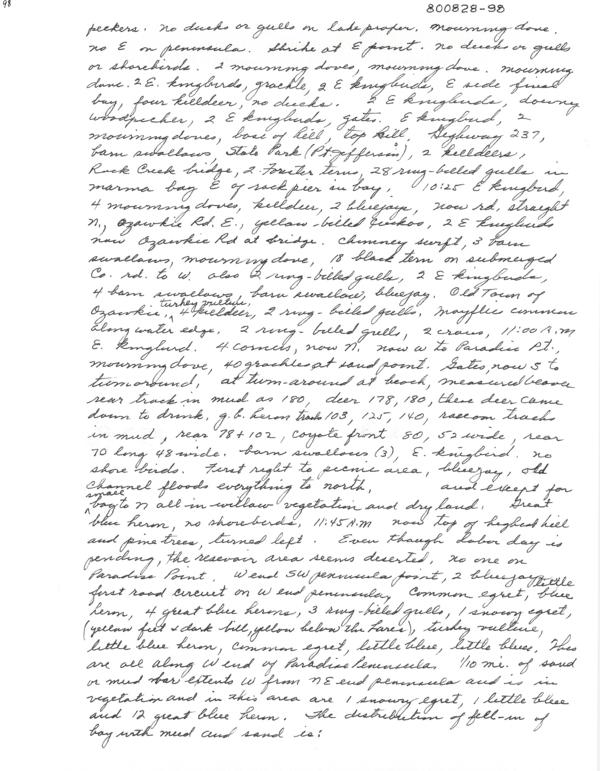 98
800828-98
peckers. no ducks or gulls on lake proper. mourning dove.
no E on peninsula. Shrike at E point. no ducks or gulls
or shorebirds. 2 mourning doves, mourning dove. mourning
dove. 2 E. kingbirds, grackle, 2 E kingbirds, E side final
bay, four killdeer, no ducks. 2 E kingbirds, downy
woodpecker, 2 E kingbirds, gates. E kingbird, 2
mourning doves, base of hill, top hill. Highway 237,
barn swallows, State Park (Pt. Jefferson), 2 killdeers,
Rock Creek bridge, 2 Forster tern, 28 ring-billed gulls in
marina bay E of rock pier in bay, 10:25 E kingbird,
4 mourning doves, killdeer, 2 bluejays, now rd. straight
N., Ozawkie Rd. E., yellow-billed cuckoo, 2 E kingbirds
now Ozawkie Rd at bridge. chimney swift, 3 barn
swallows, mourning dove, 18 black tern on submerged
Co. rd. to W. also 2 ring-billed gulls, 2 E kingbirds,
4 barn swallows, barn swallow, bluejay. Old Town of
Ozawkie, turkey vulture, 4 killdeer, 2 ring-billed gulls. mayflies common
along water edge. 2 ring-billed gulls, 2 crows, 11:00 A.M
E. kingbird. 4 comers, now N. now W to Paradise Pt.,
mourning dove, 40 grackles at sand point. Gates, now S to
turnaround, at turn-around at beach, measured beaver
rear track in mud as 180, deer 178, 180, these deer came
down to drink, g.b. heron tracks 103, 125, 140, raccoon tracks
in mud, rear 78+102, coyote front 80, 52 wide, rear
70 long 48 wide. barn swallows (3), E. kingbird. no
shore birds. First right to picnic area, bluejay, old
channel floods everything to north, and except for
small bay to N all in willow vegetation and dry land. Great
blue heron, no shorebirds, 11:45 A.M now top of highest hill
and pine trees, turned left. Even though Labor day is
pending, the resevoir area seems deserted, no one on
Paradise Point. W end SW peninsula point, 2 bluejays,
first road circuit on W end peninsula, Common egret, little blue
heron, 4 great blue herons, 3 ring-billed gulls, 1 snowy egret,
(yellow feet & dark bill, yellow below the lores), turkey vulture,
little blue heron, common egret, little blue, little blues. This
are all along W end of Paradise Peninsula. 1/10 mi. of sand
or mud bar extents W from NE end peninsula and is in
vegetation and in this area are 1 snowy egret, 1 little blue
and 12 great blue heron. The distribution of fill-in of
bay with mud and sand is: